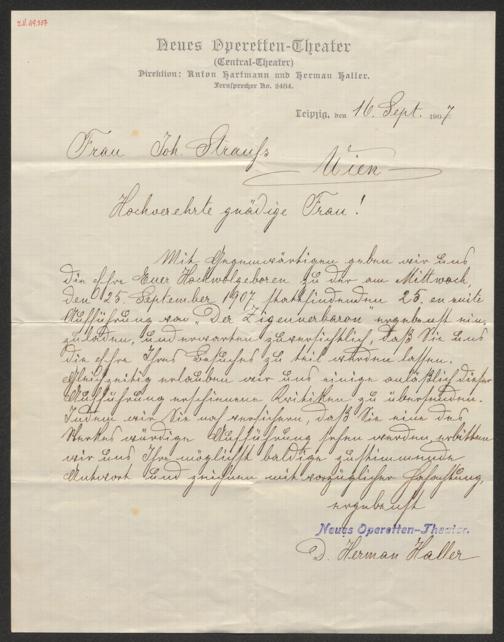 Z.V. 49.357
Neues Operetten-Theater
(Central-Theater)
Direktion: Anton Hartmann und Herman Haller.
Fernsprecher No. 2484.
Leipzig, den 16. Sept. 1907
Frau Joh. Strauss
Wien
Hochverehrte gnädige Frau!
Mit Gegenwärtigen geben wir uns
die Ehre Euer Hochwolgeboren zu der am Mittwoch,
den 25. September 1907 stattfindenden 25. en suite
Aufführung von "Der Zigeunerbaron" ergebenst ein-
zuladen, und erwarten zuversichtlich, daß Sie uns
die Ehre Ihres Besuches zu teil werden lassen.
Gleichzeitig erlauben wir uns einige anläßlich dieser
Aufführung erschienene Kritiken zu übersenden.
Indem wir Sie noch versichern, daß Sie eine des
Werkes würdige Aufführung sehen werden, erbitten
wir uns Ihre möglichst baldige zustimmende
Antwort und zeichnen mit vorzüglicher Hochachtung,
ergebenst
Neues Operetten-Theater.
D. Herman Haller